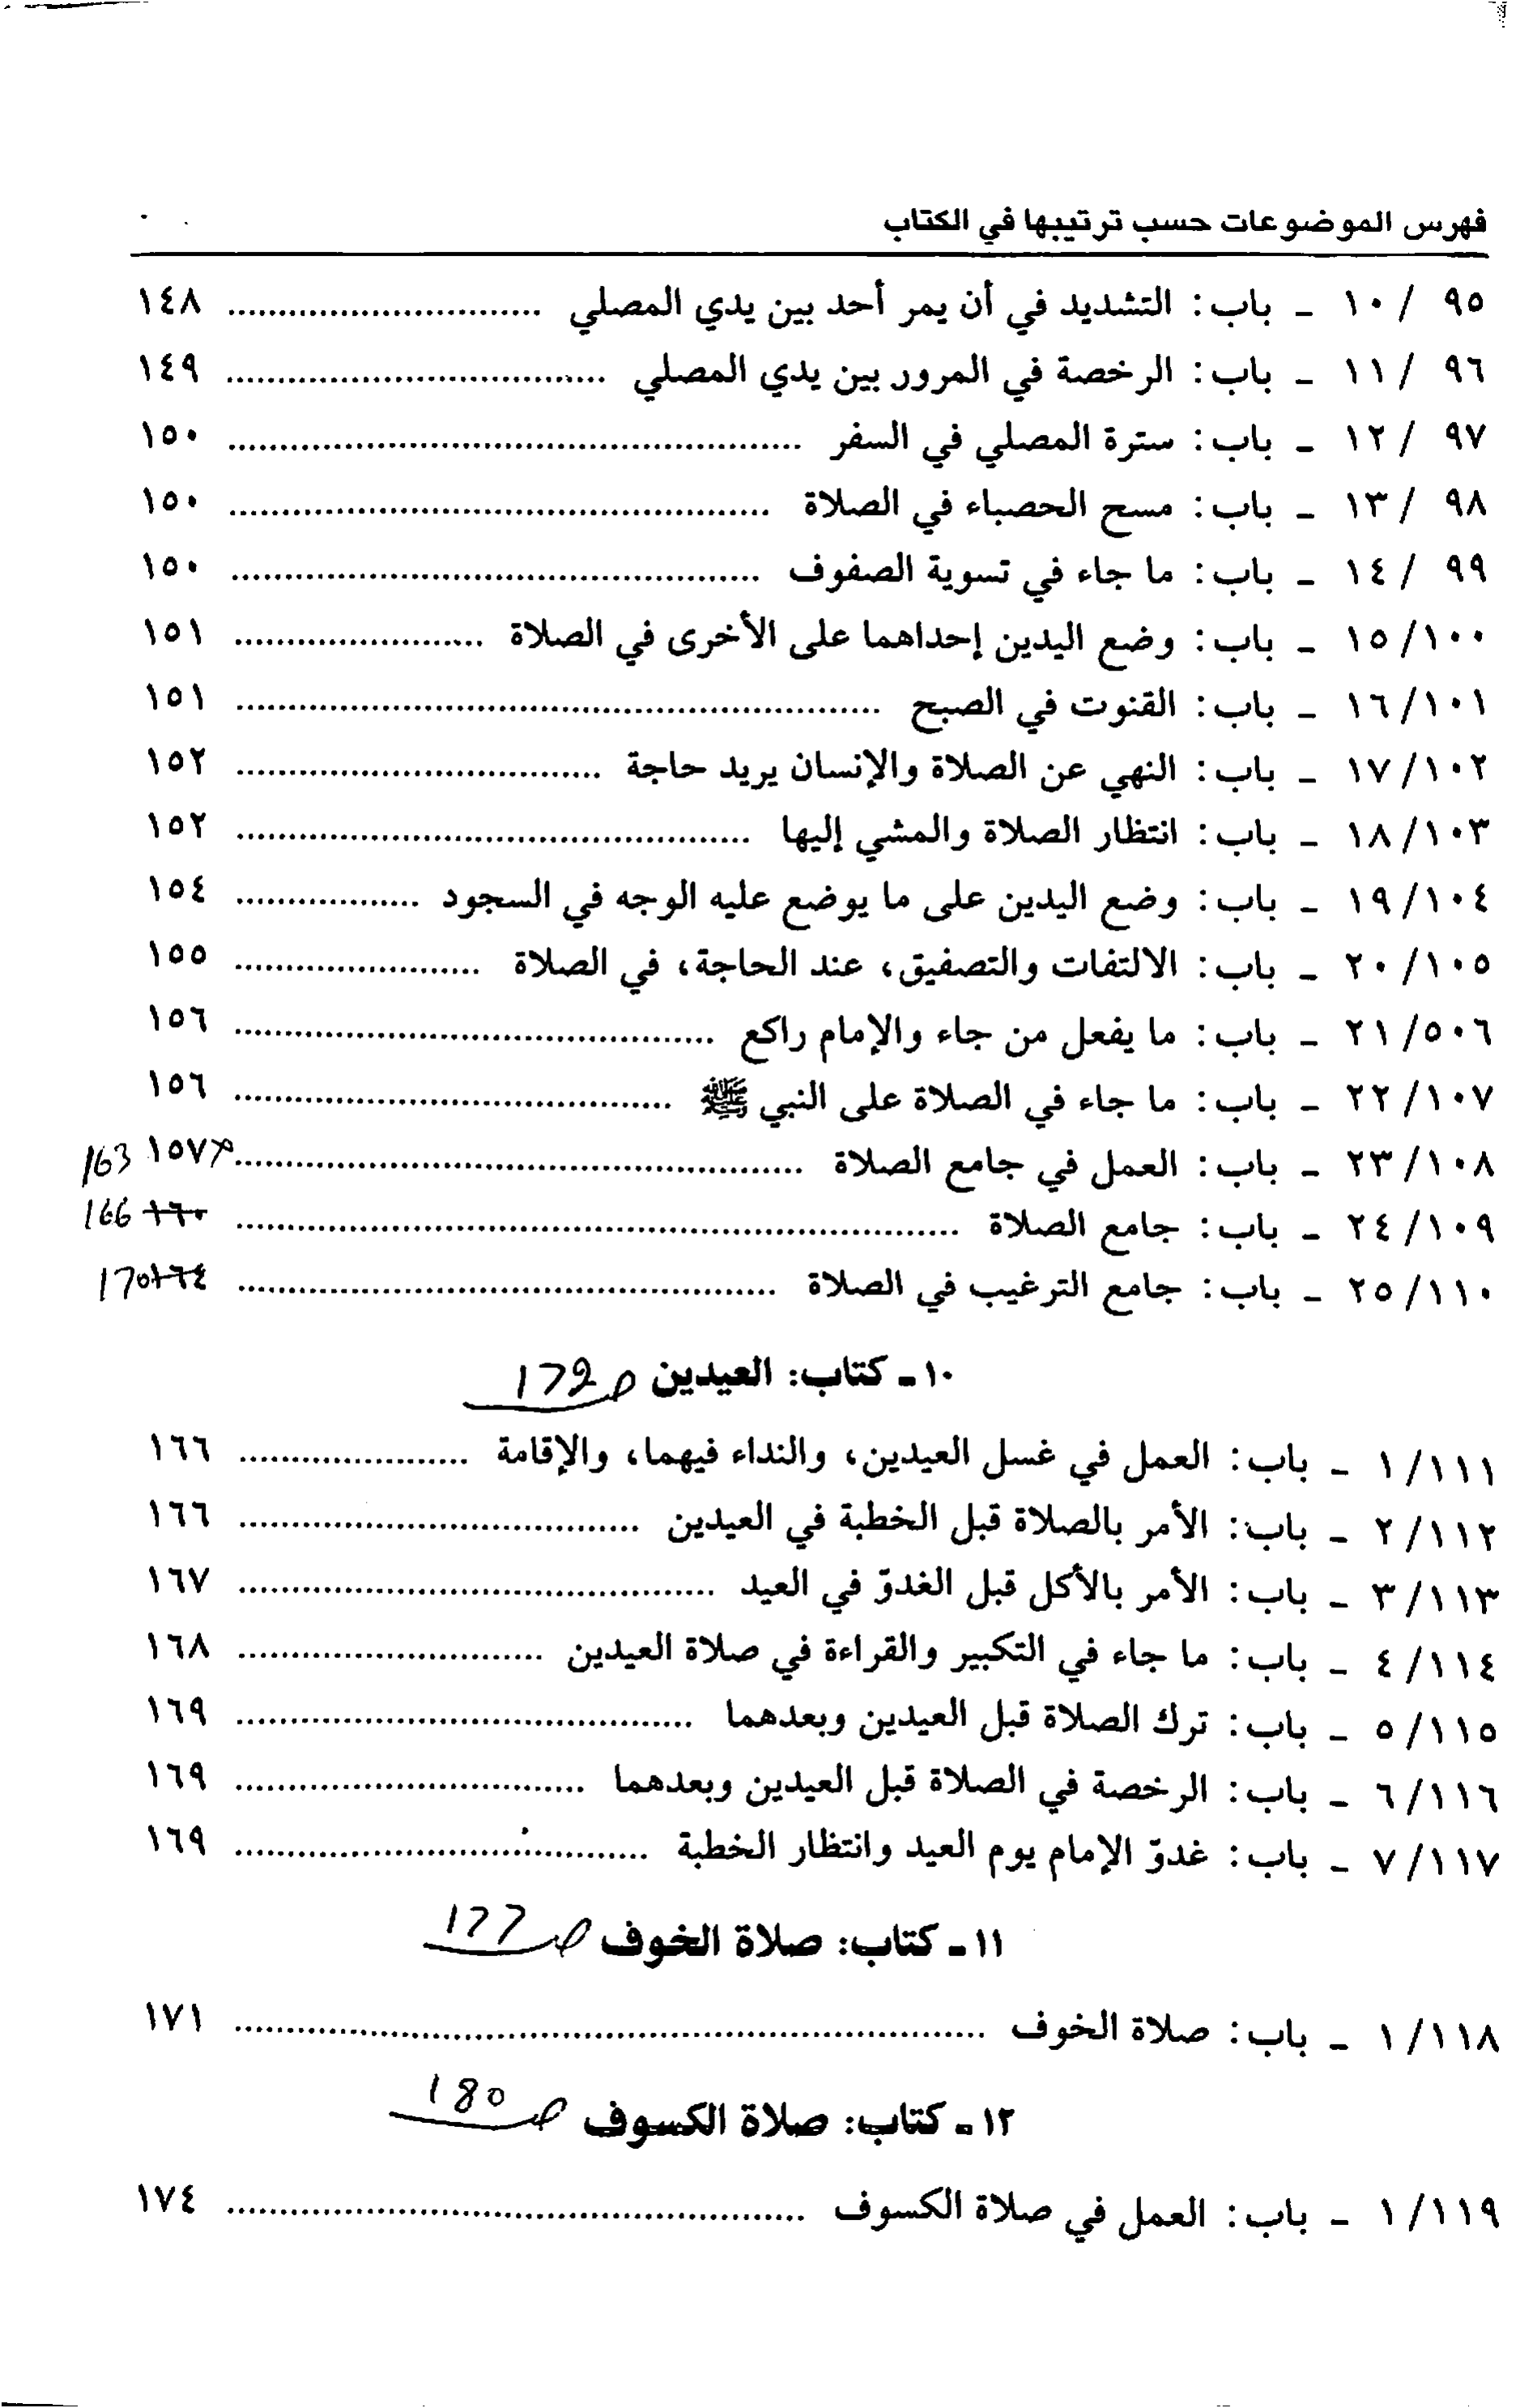 فهرس الموضوعات حسب ترتيبها في الكتاب
٩٥ / ١٠ - باب: التشديد في أن يمر أحد بين يدي المصلي ........ ١٤٨
٩٦ / ١١ - باب: الرخصة في المرور بين يدي المصلي ........ ١٤٩
٩٧ / ١٢ - باب: سترة المصلي في السفر ........ ١٥٠
٩٨ / ١٣ - باب: مسح الحصباء في الصلاة ........ ١٥٠
٩٩ / ١٤ - باب: ما جاء في تسوية الصفوف ........ ١٥٠
١٠٠/ ١٥ - باب: وضع اليدين إحداهما على الأخرى في الصلاة ........ ١٥١
١٠١/ ١٦ - باب: القنوت في الصبح ........ ١٥١
١٠٢/ ١٧ - باب: النهي عن الصلاة والإنسان يريد حاجة ........ ١٥٢
١٠٣/ ١٨ - باب: انتظار الصلاة والمشي إليها ........ ١٥٢
١٠٤/ ١٩ - باب: وضع اليدين على ما يوضع عليه الوجه في السجود ........ ١٥٤
١٠٥/ ٢٠ - باب: الالتفات والتصفيق، عند الحاجة، في الصلاة ........ ١٥٥
٥٠٦/ ٢١ - باب: ما يفعل من جاء والإمام راكع ........ ١٥٦
١٠٧/ ٢٢ - باب: ما جاء في الصلاة على النبي ﷺ ........ ١٥٦
١٠٨/ ٢٣ - باب: العمل في جامع الصلاة ........ ١٥٧ 163
١٠٩/ ٢٤ - باب: جامع الصلاة ........ ١٦٠ 166
١١٠/ ٢٥ - باب: جامع الترغيب في الصلاة ........ ١٦٤ 170
١٠ - كتاب: العيدين ص 172
١١١/ ١ - باب: العمل في غسل العيدين، والنداء فيهما، والإقامة ........ ١٦٦
١١٢/ ٢ - باب: الأمر بالصلاة قبل الخطبة في العيدين ........ ١٦٦
١١٣/ ٣ - باب: الأمر بالأكل قبل الغدوّ في العيد ........ ١٦٧
١١٤/ ٤ - باب: ما جاء في التكبير والقراءة في صلاة العيدين ........ ١٦٨
١١٥/ ٥ - باب: ترك الصلاة قبل العيدين وبعدهما ........ ١٦٩
١١٦/ ٦ - باب: الرخصة في الصلاة قبل العيدين وبعدهما ........ ١٦٩
١١٧/ ٧ - باب: غدوّ الإمام يوم العيد وانتظار الخطبة ........ ١٦٩
١١ - كتاب: صلاة الخوف ص 177
١١٨/ ١ - باب: صلاة الخوف ........ ١٧١
١٢ - كتاب: صلاة الكسوف ص 180
١١٩/ ١ - باب: العمل في صلاة الكسوف ........ ١٧٤